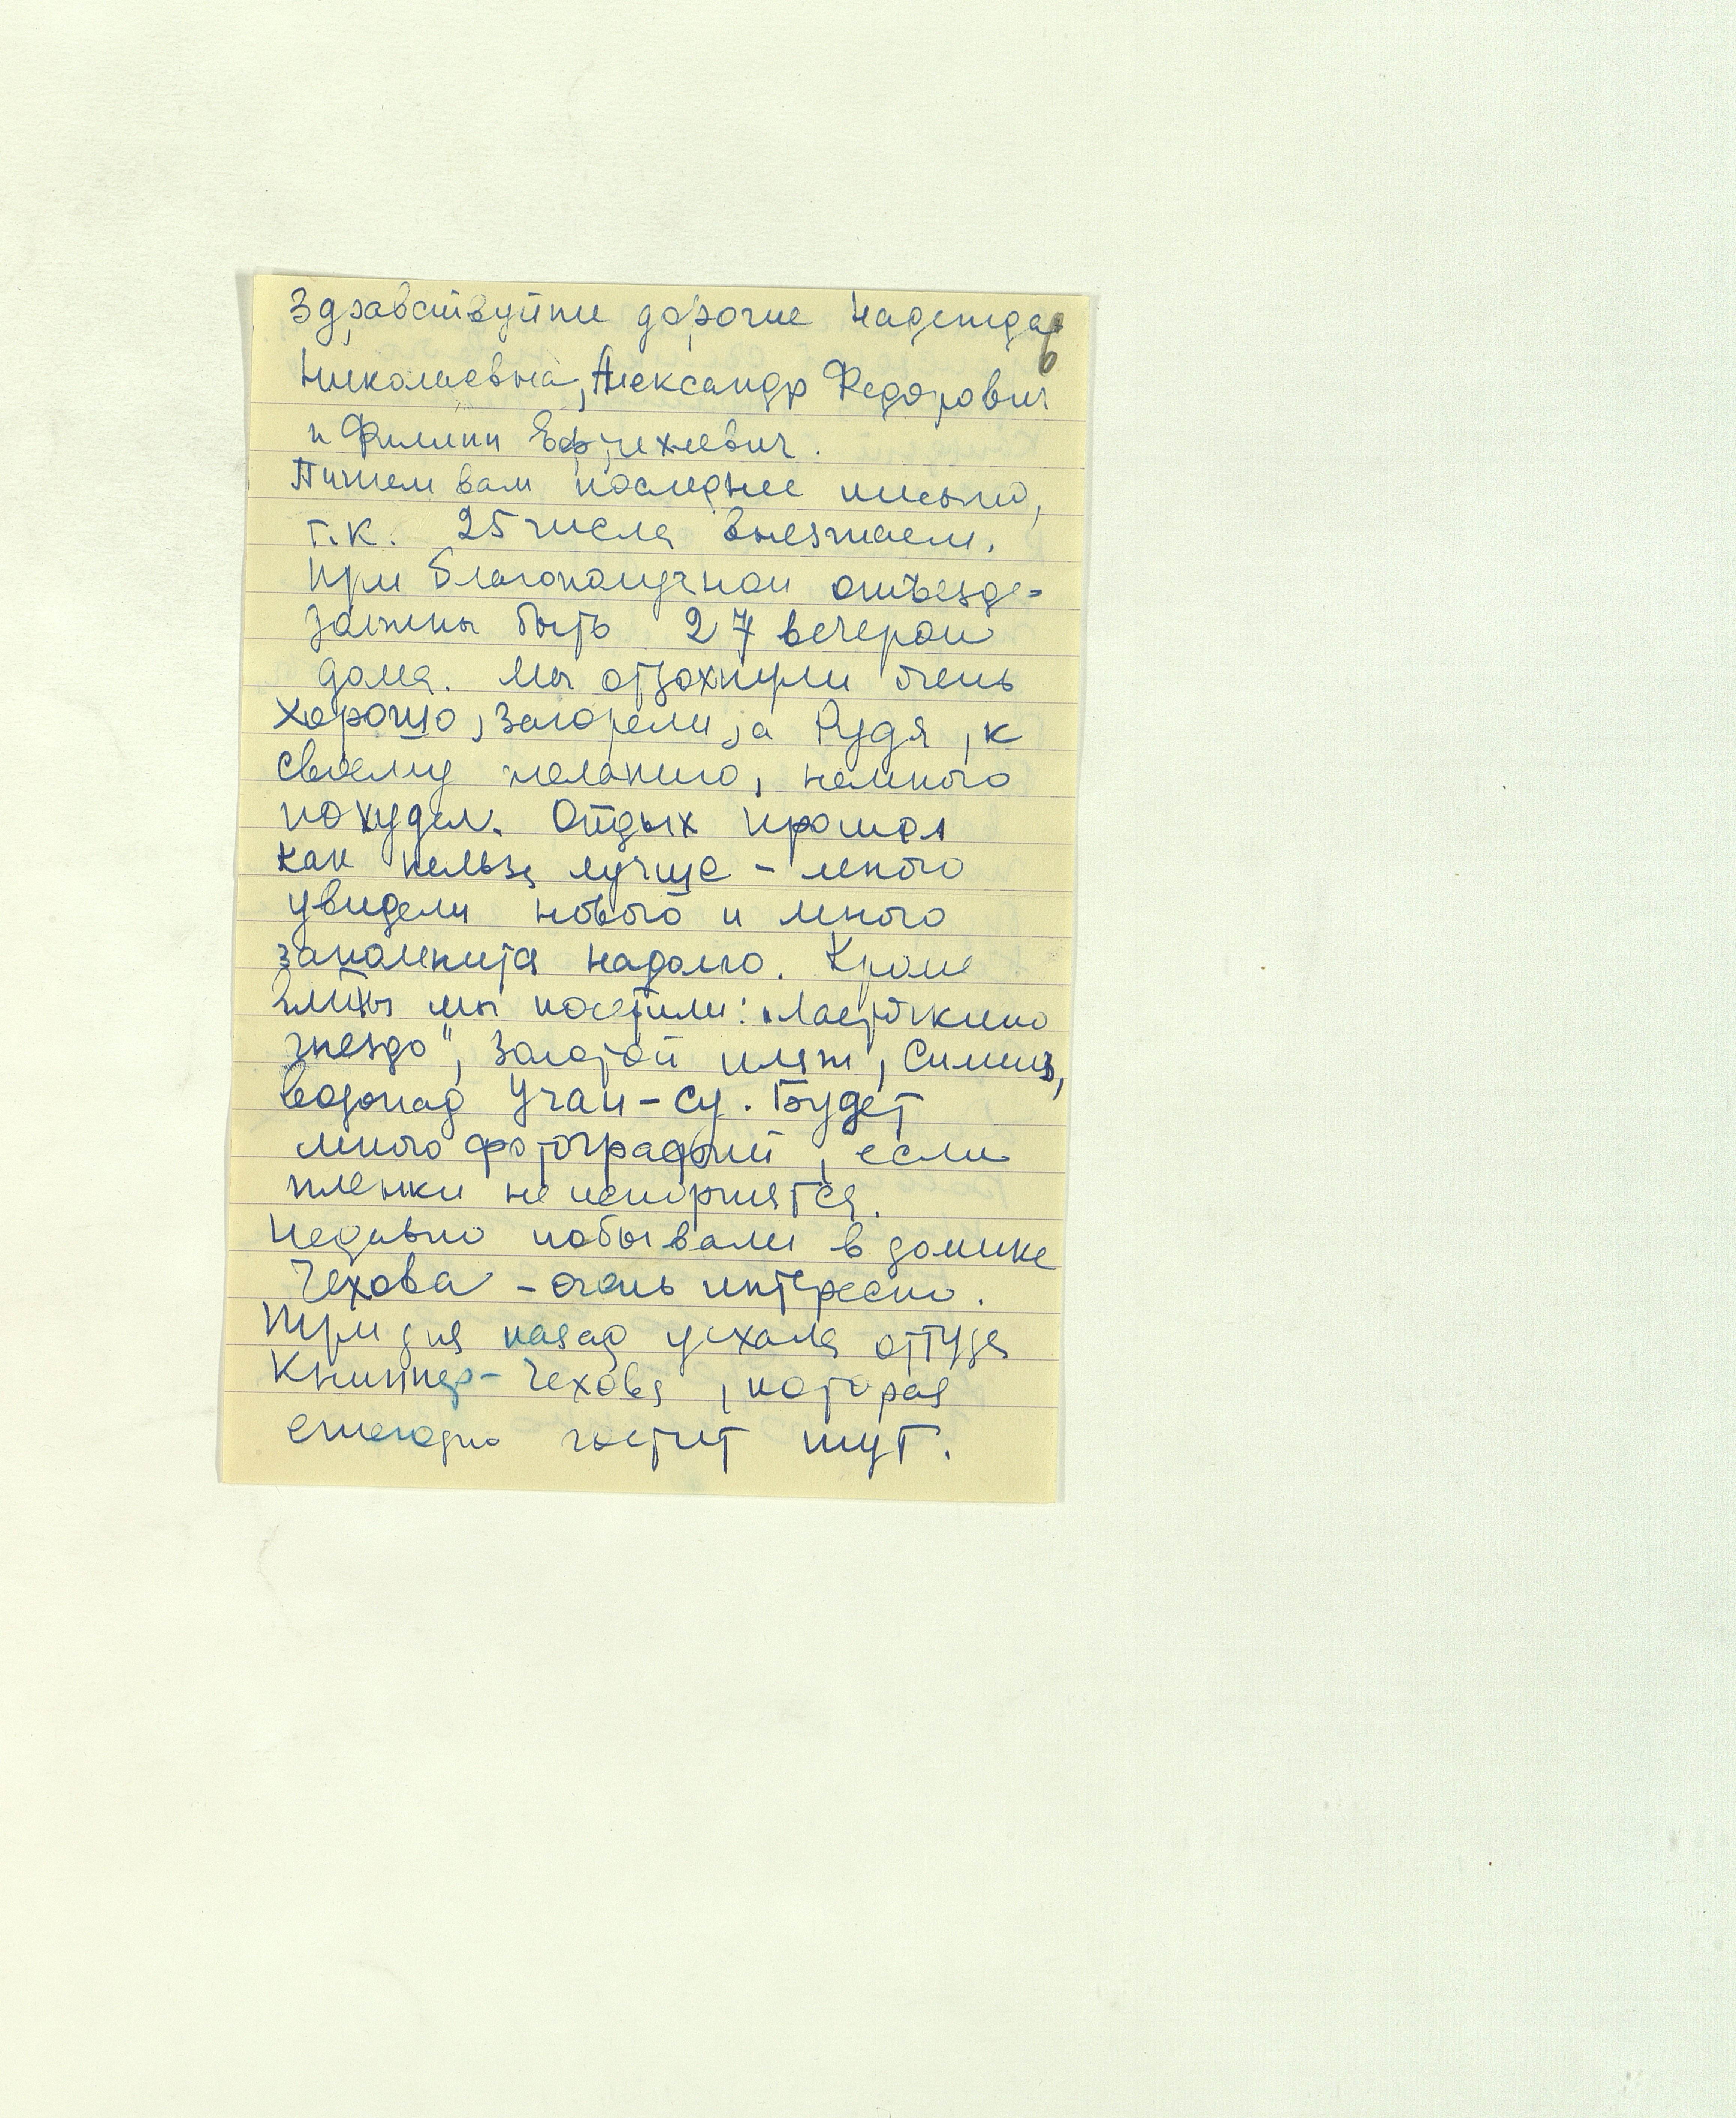 Здравствуйте дорогие Надежда
Николаевна, Александр Федорович
и Филипп Ефремович.
Пишем вам последнее письмо,
т.к. 25 числа выезжаем.
При благополучном отъезде -
должны быть 27 вечером
дома. Мы отдохнули очень
хорошо, загорели, а Рудя, к
своему желанию, немного
похудел. Отдых прошел
как нельзя лучше - много
увидели нового и много
запомнится надолго. Кроме
мы посетили: „Ласточкино
гнездо", Золотой пляж, Симеиз,
водопад Учан-Су. Будет
много фотографий, если
пленки не испортятся.
Недавно побывали в домике
Чехова - очень интересно.
Три дня назад уехала оттуда
Книппер-Чехова, которая
ежегодно гостит тут.